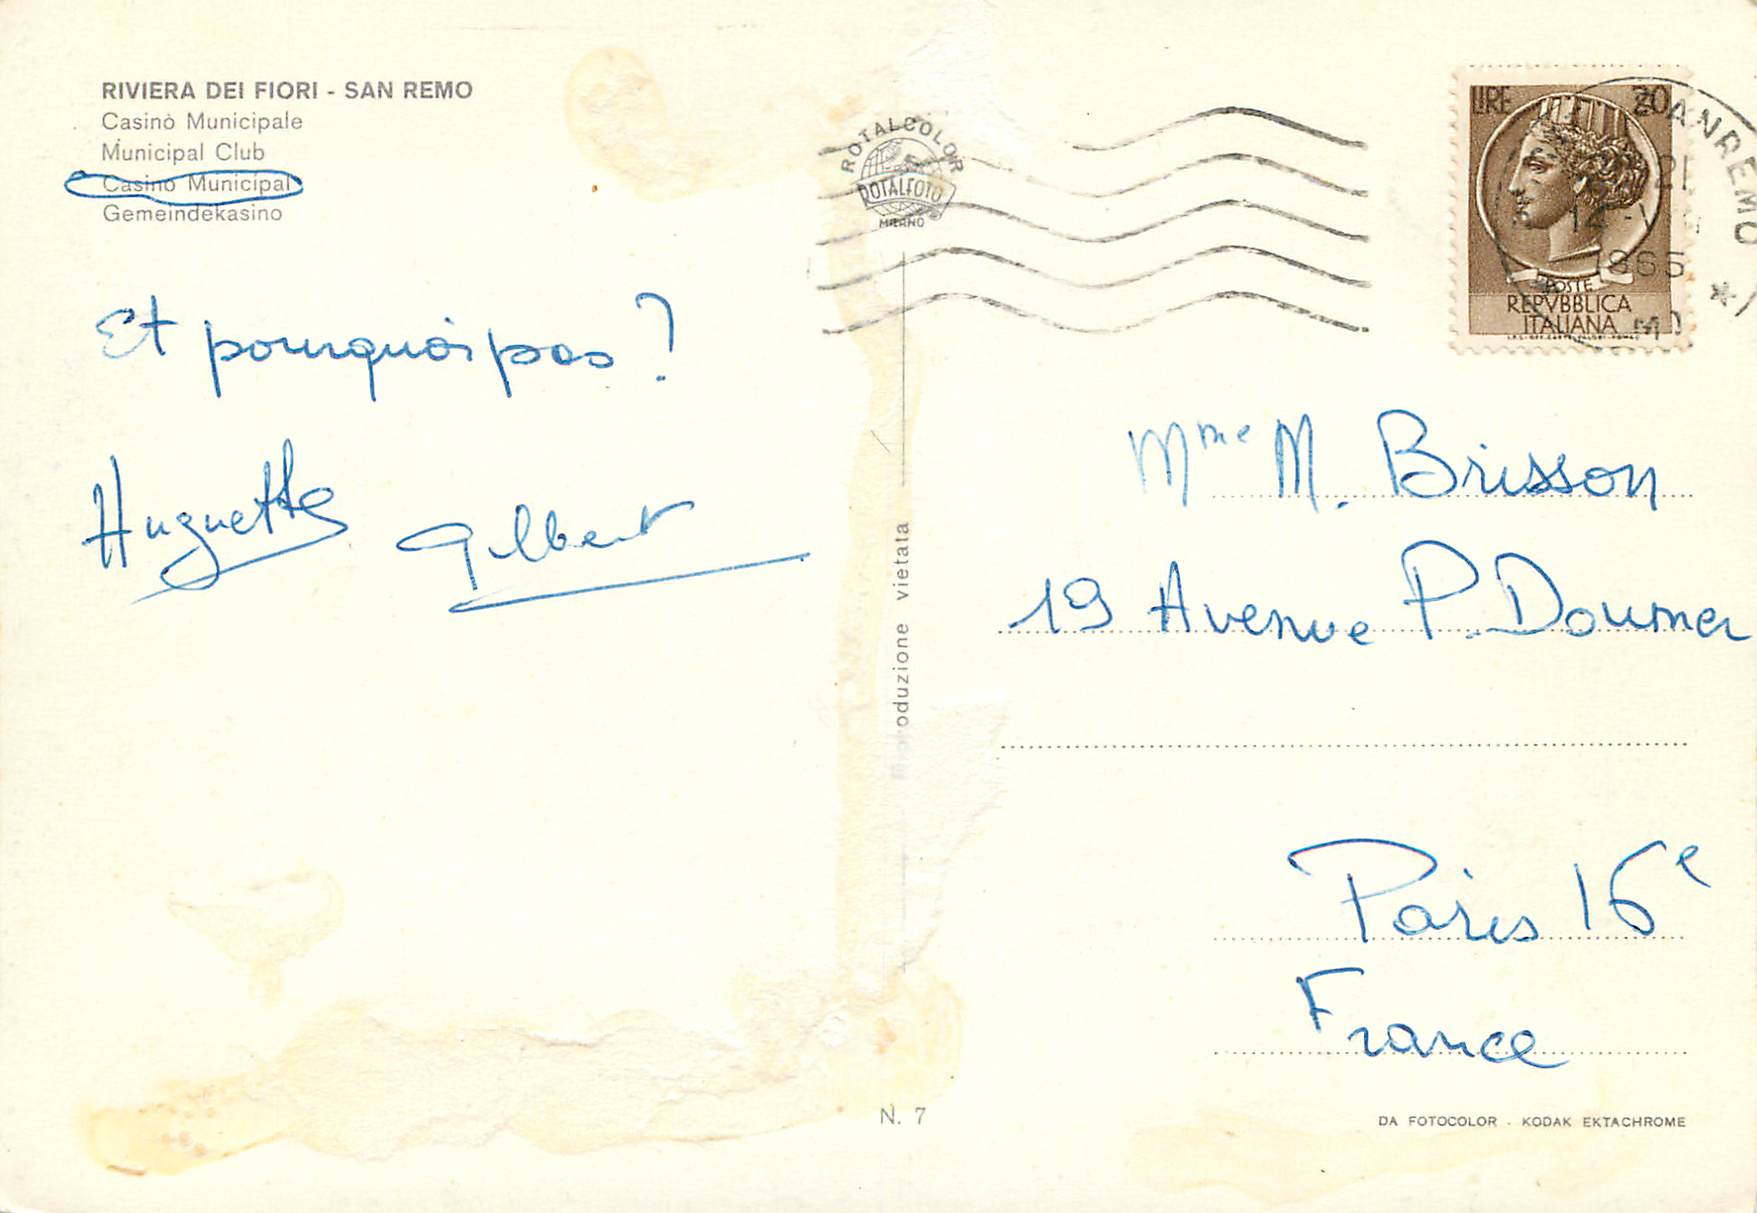 RIVIERA DEI FIORI - SAN REMO
Casinò Municipale
Municipal Club
Casino Municipal
Gemeindekasino
Et pourquoi pas ?
Huguette Gilbert
ROTALCOLOR
ROTALFOTO
MILANO
Riproduzione vietata
LIRE 20
POSTE
REPVBBLICA
ITALIANA
SANREMO
21
14
1965
Mme M. Brisson
19 Avenue P. Doumer
Paris 16e
France
N. 7
DA FOTOCOLOR - KODAK EKTACHROME